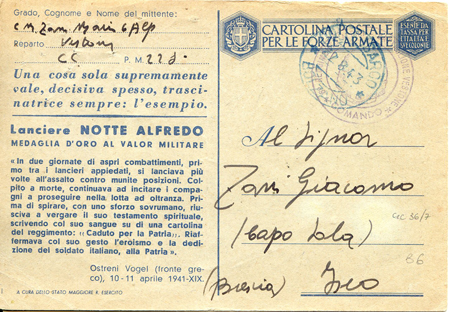 Grado, Cognome e Nome del mittente:
C.M. Zani Mario 6 Alp
Reparto Vestone
CC P. M. 228.
Una cosa sola supremamente
vale, decisiva spesso, trasci-
natrice sempre: l'esempio.
Lanciere NOTTE ALFREDO
MEDAGLIA D'ORO AL VALOR MILITARE
« In due giornate di aspri combattimenti, pri-
mo tra i lancieri appiedati, si lanciava più
volte all'assalto contro munite posizioni. Col-
pito a morte, continuava ad incitare i compa-
gni a proseguire nella lotta ad oltranza. Pri-
ma di spirare, con uno sforzo sovrumano, riu-
sciva a vergare il suo testamento spirituale,
scrivendo col suo sangue su di una cartolina
del reggimento: « Caduto per la Patria ». Riaf-
fermava col suo gesto l'eroismo e la dedi-
zione del soldato italiano, alla Patria ».
Ostreni Vogel (fronte gre-
co), 10 - 11 aprile 1941-XIX.
A CURA DELLO STATO MAGGIORE R. ESERCITO
CARTOLINA POSTALE
PER LE FORZE ARMATE
ESENTE DA
TASSA PER
L'ITALIA E
COMANDO
Al Signor
Zani Giacomo
(Capo Sala)
Iseo
(Brescia)
86